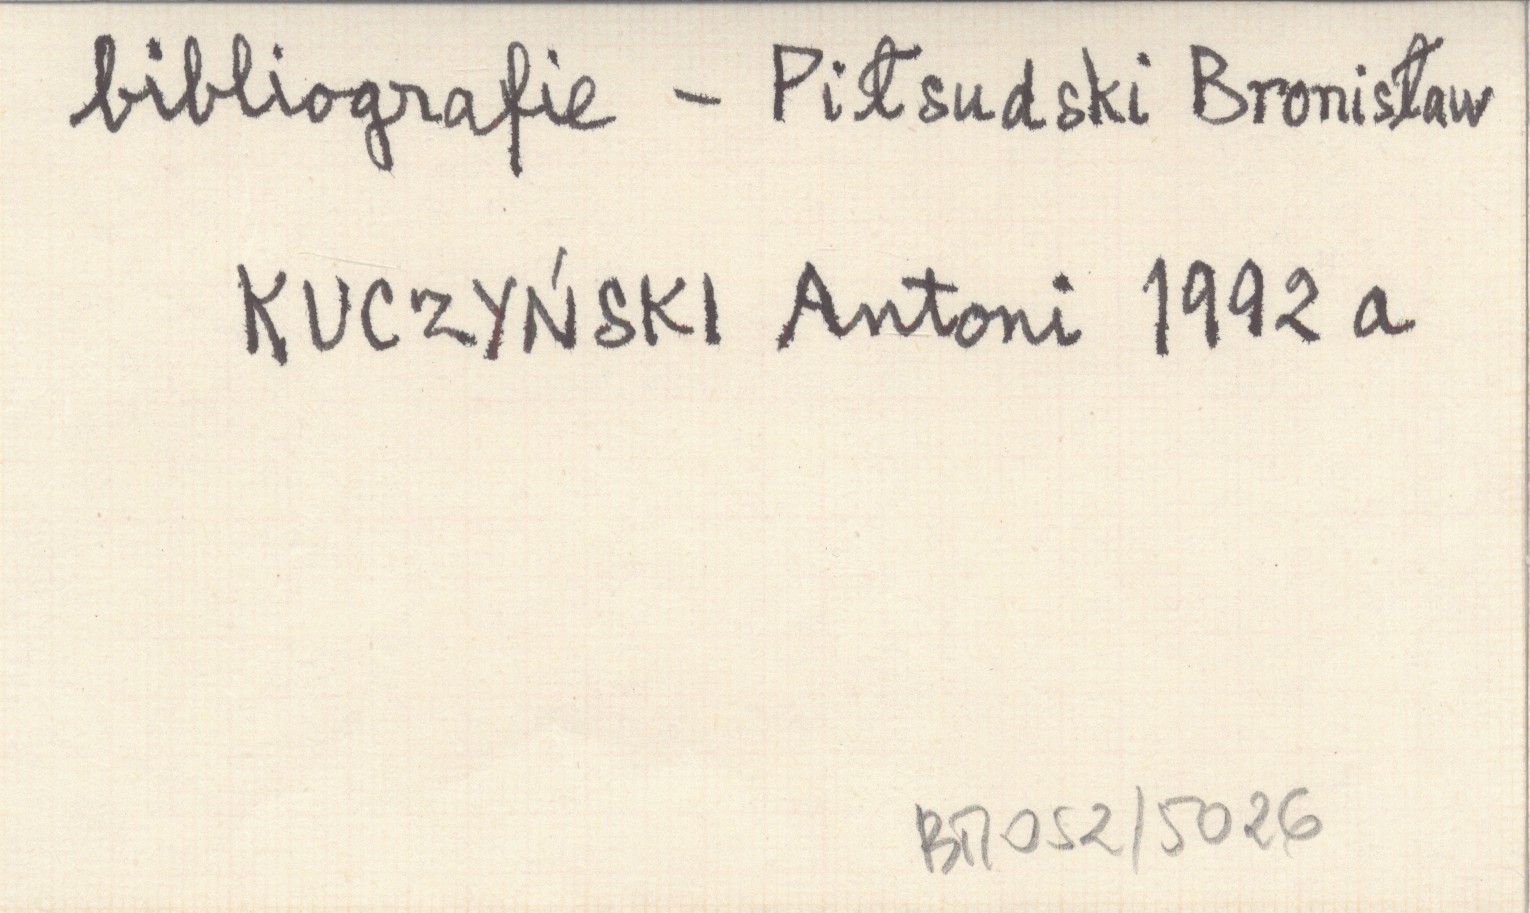 bibliografie - Piłsudski Bronisław
KUCZYŃSKI Antoni 1992 a
052/5026